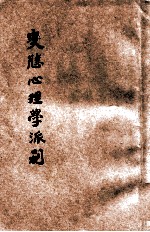 變態心理學派別